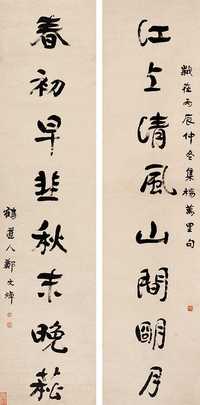 歲在丙辰仲冬集楊萬里句
江上清風山間明月
春初早韭秋末晚菘
鶴道人鄭文焯